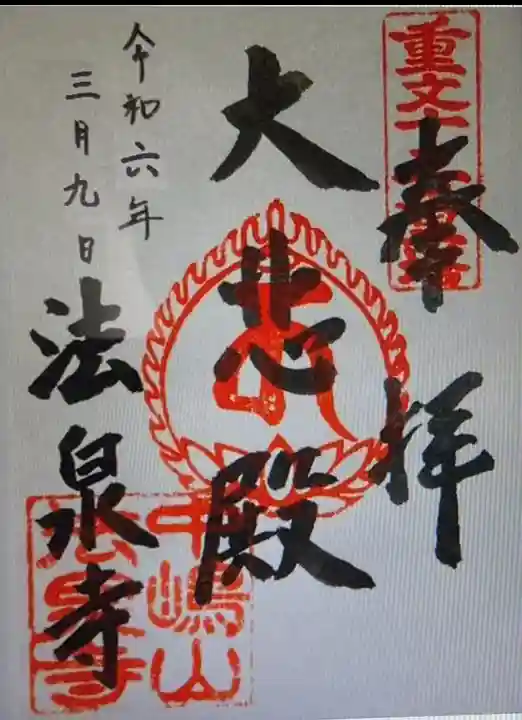 重文十
奉拝
大悲殿
令和六年
三月九日
法泉寺
中嶋山
法泉寺